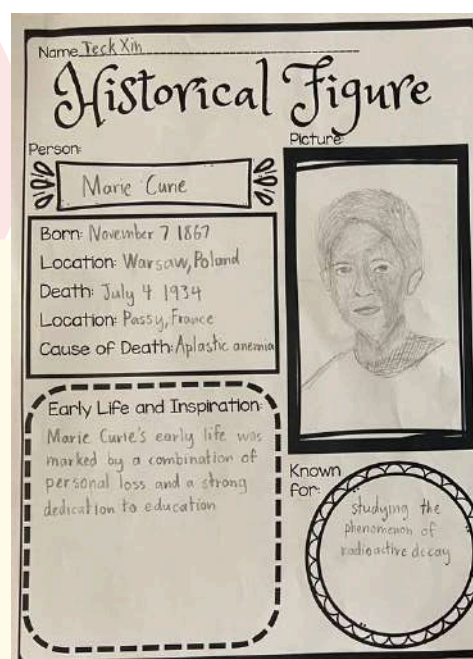 Name Teck Xin
Historical Figure
Person:
Marie Curie
Picture:
Born: November 7 1867
Location: Warsaw, Poland
Death: July 4 1934
Location: Passy, France
Cause of Death: Aplastic anemia
Early Life and Inspiration:
Marie Curie's early life was
marked by a combination of
personal loss and a strong
dedication to education
Known
for:
studying the
phenomenon of
radioactive decay